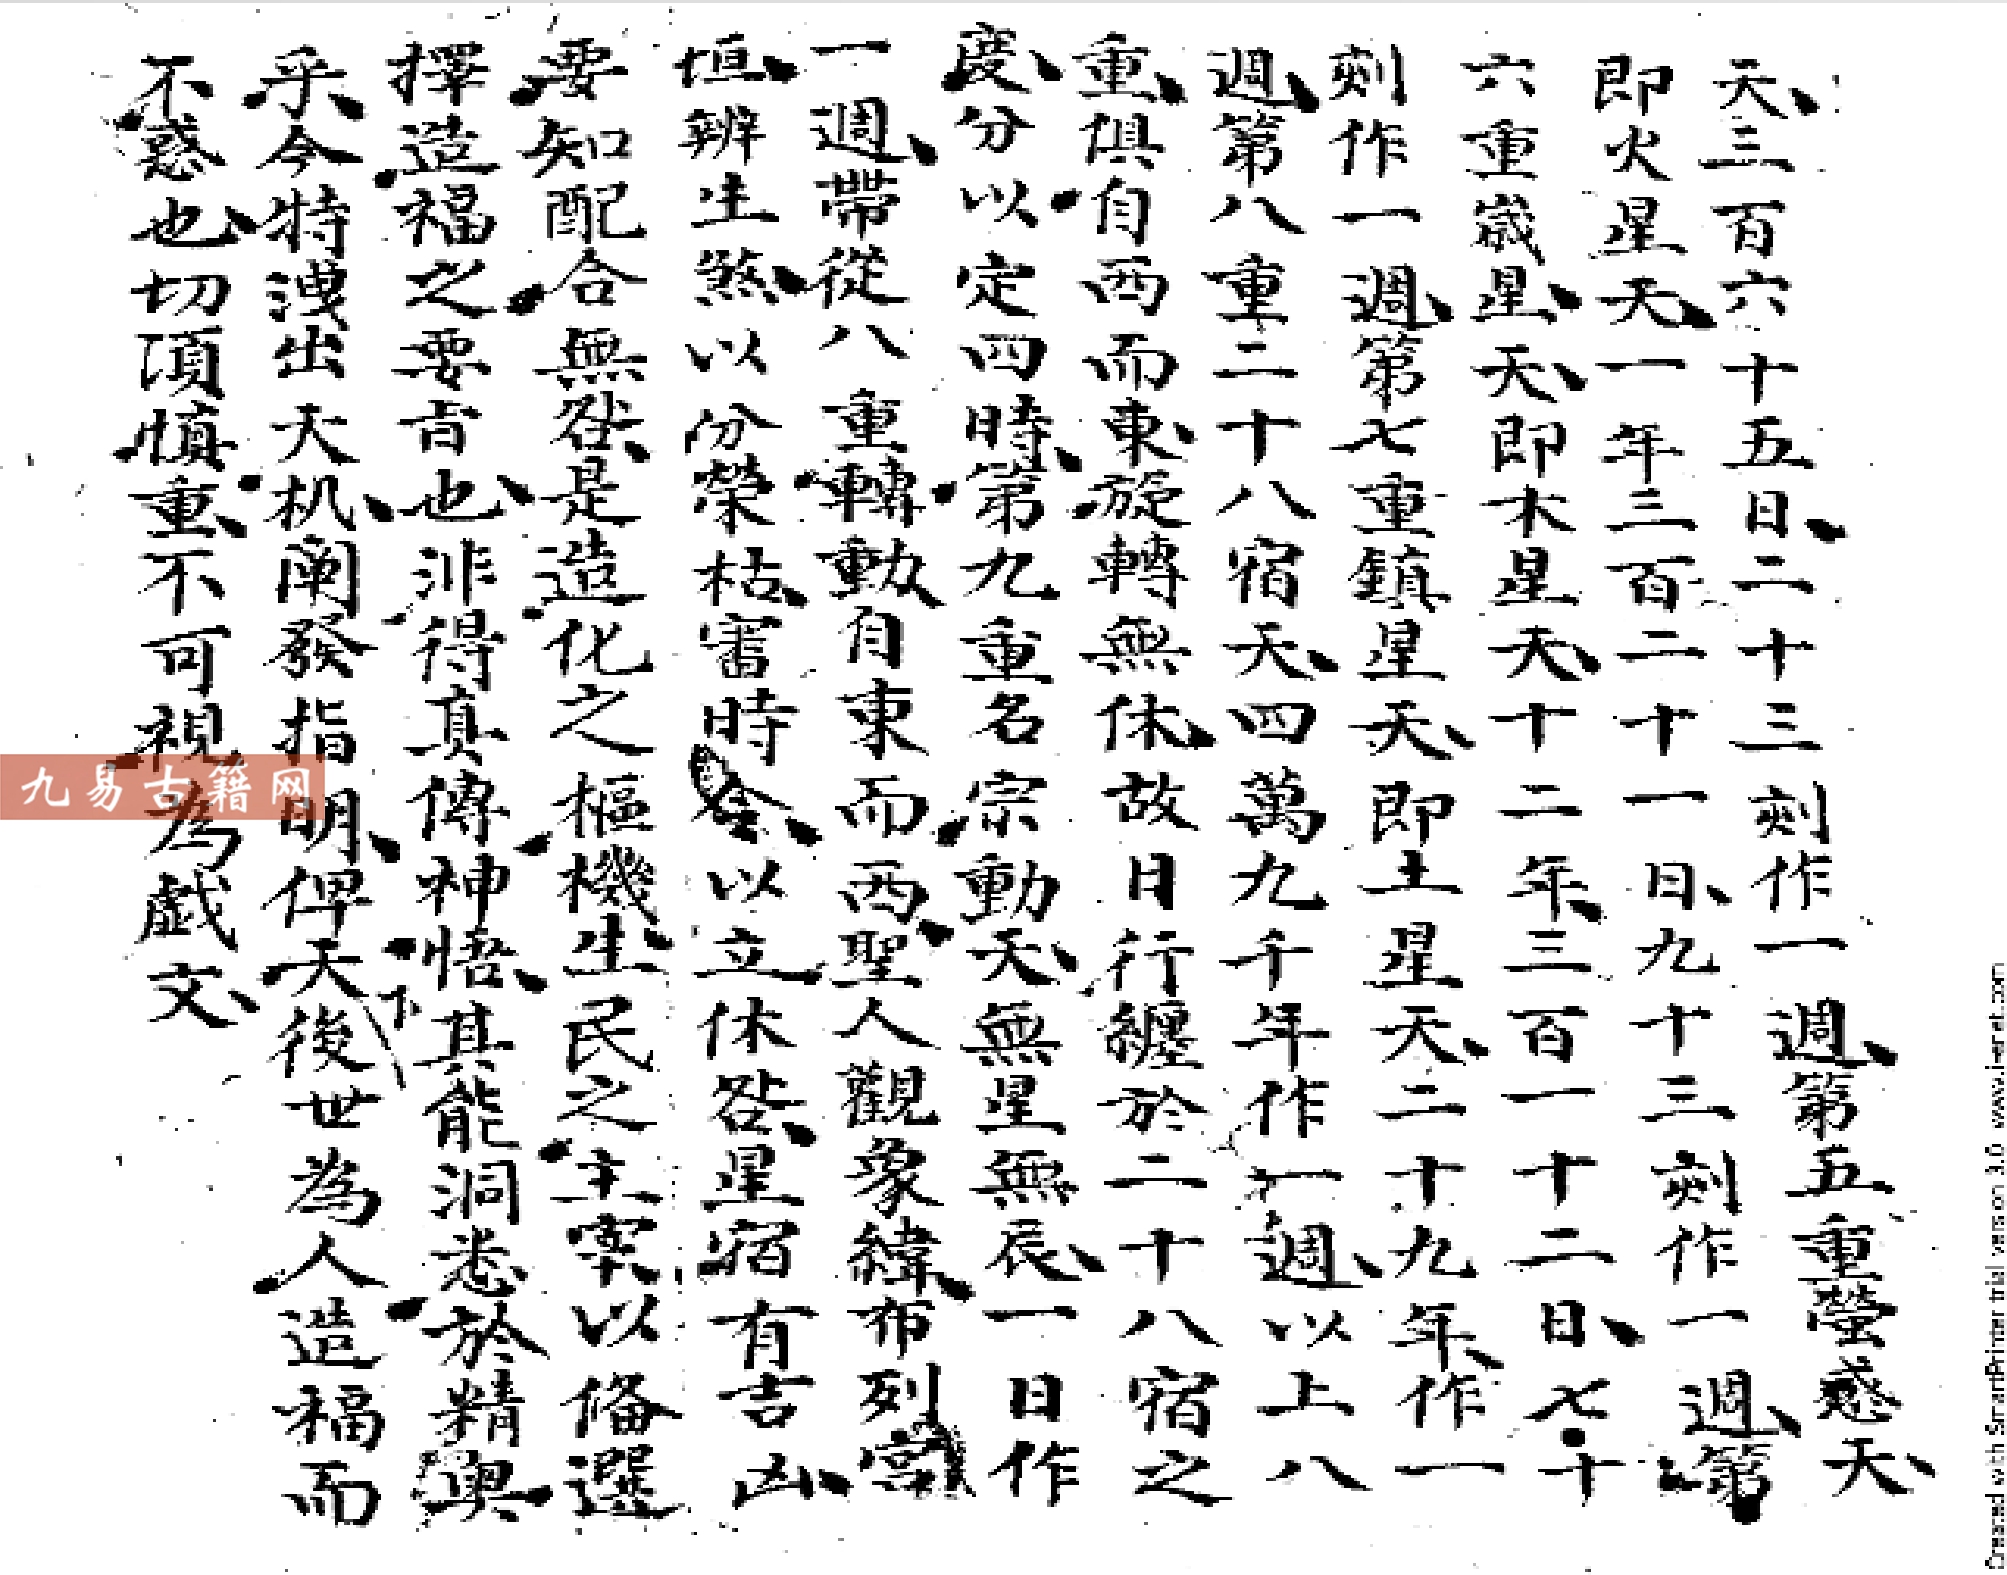 天三百六十五日二十三刻作一週第五重螢惑天
即火星天一年三百二十一日九十三刻作一週第
六重歲星天即木星天十二年三百一十二日七十
刻作一週第七重鎮星天即土星天二十九年作一
週第八重二十八宿天四萬九千年作一週以上八
重俱自西而東旋轉無休故日行纏於二十八宿之
度分以定四時第九重名宗動天無星無辰一日作
一週帶從八重轉動自東而西聖人觀象緯布列宮
垣辨生煞以分榮枯審時令以立休咎星宿有吉凶
要知配合無咎是造化之樞機生民之主宰以俻選
擇造福之要旨也非得真傳神悟其能洞悉於精奧
乎今特洩出天机阐發指明俾天後世為人造福而
不惑也切須慎重不可視為戯文
下
九易古籍网
Created with SmartPrinter trial version 3.0 www.i-enet.com